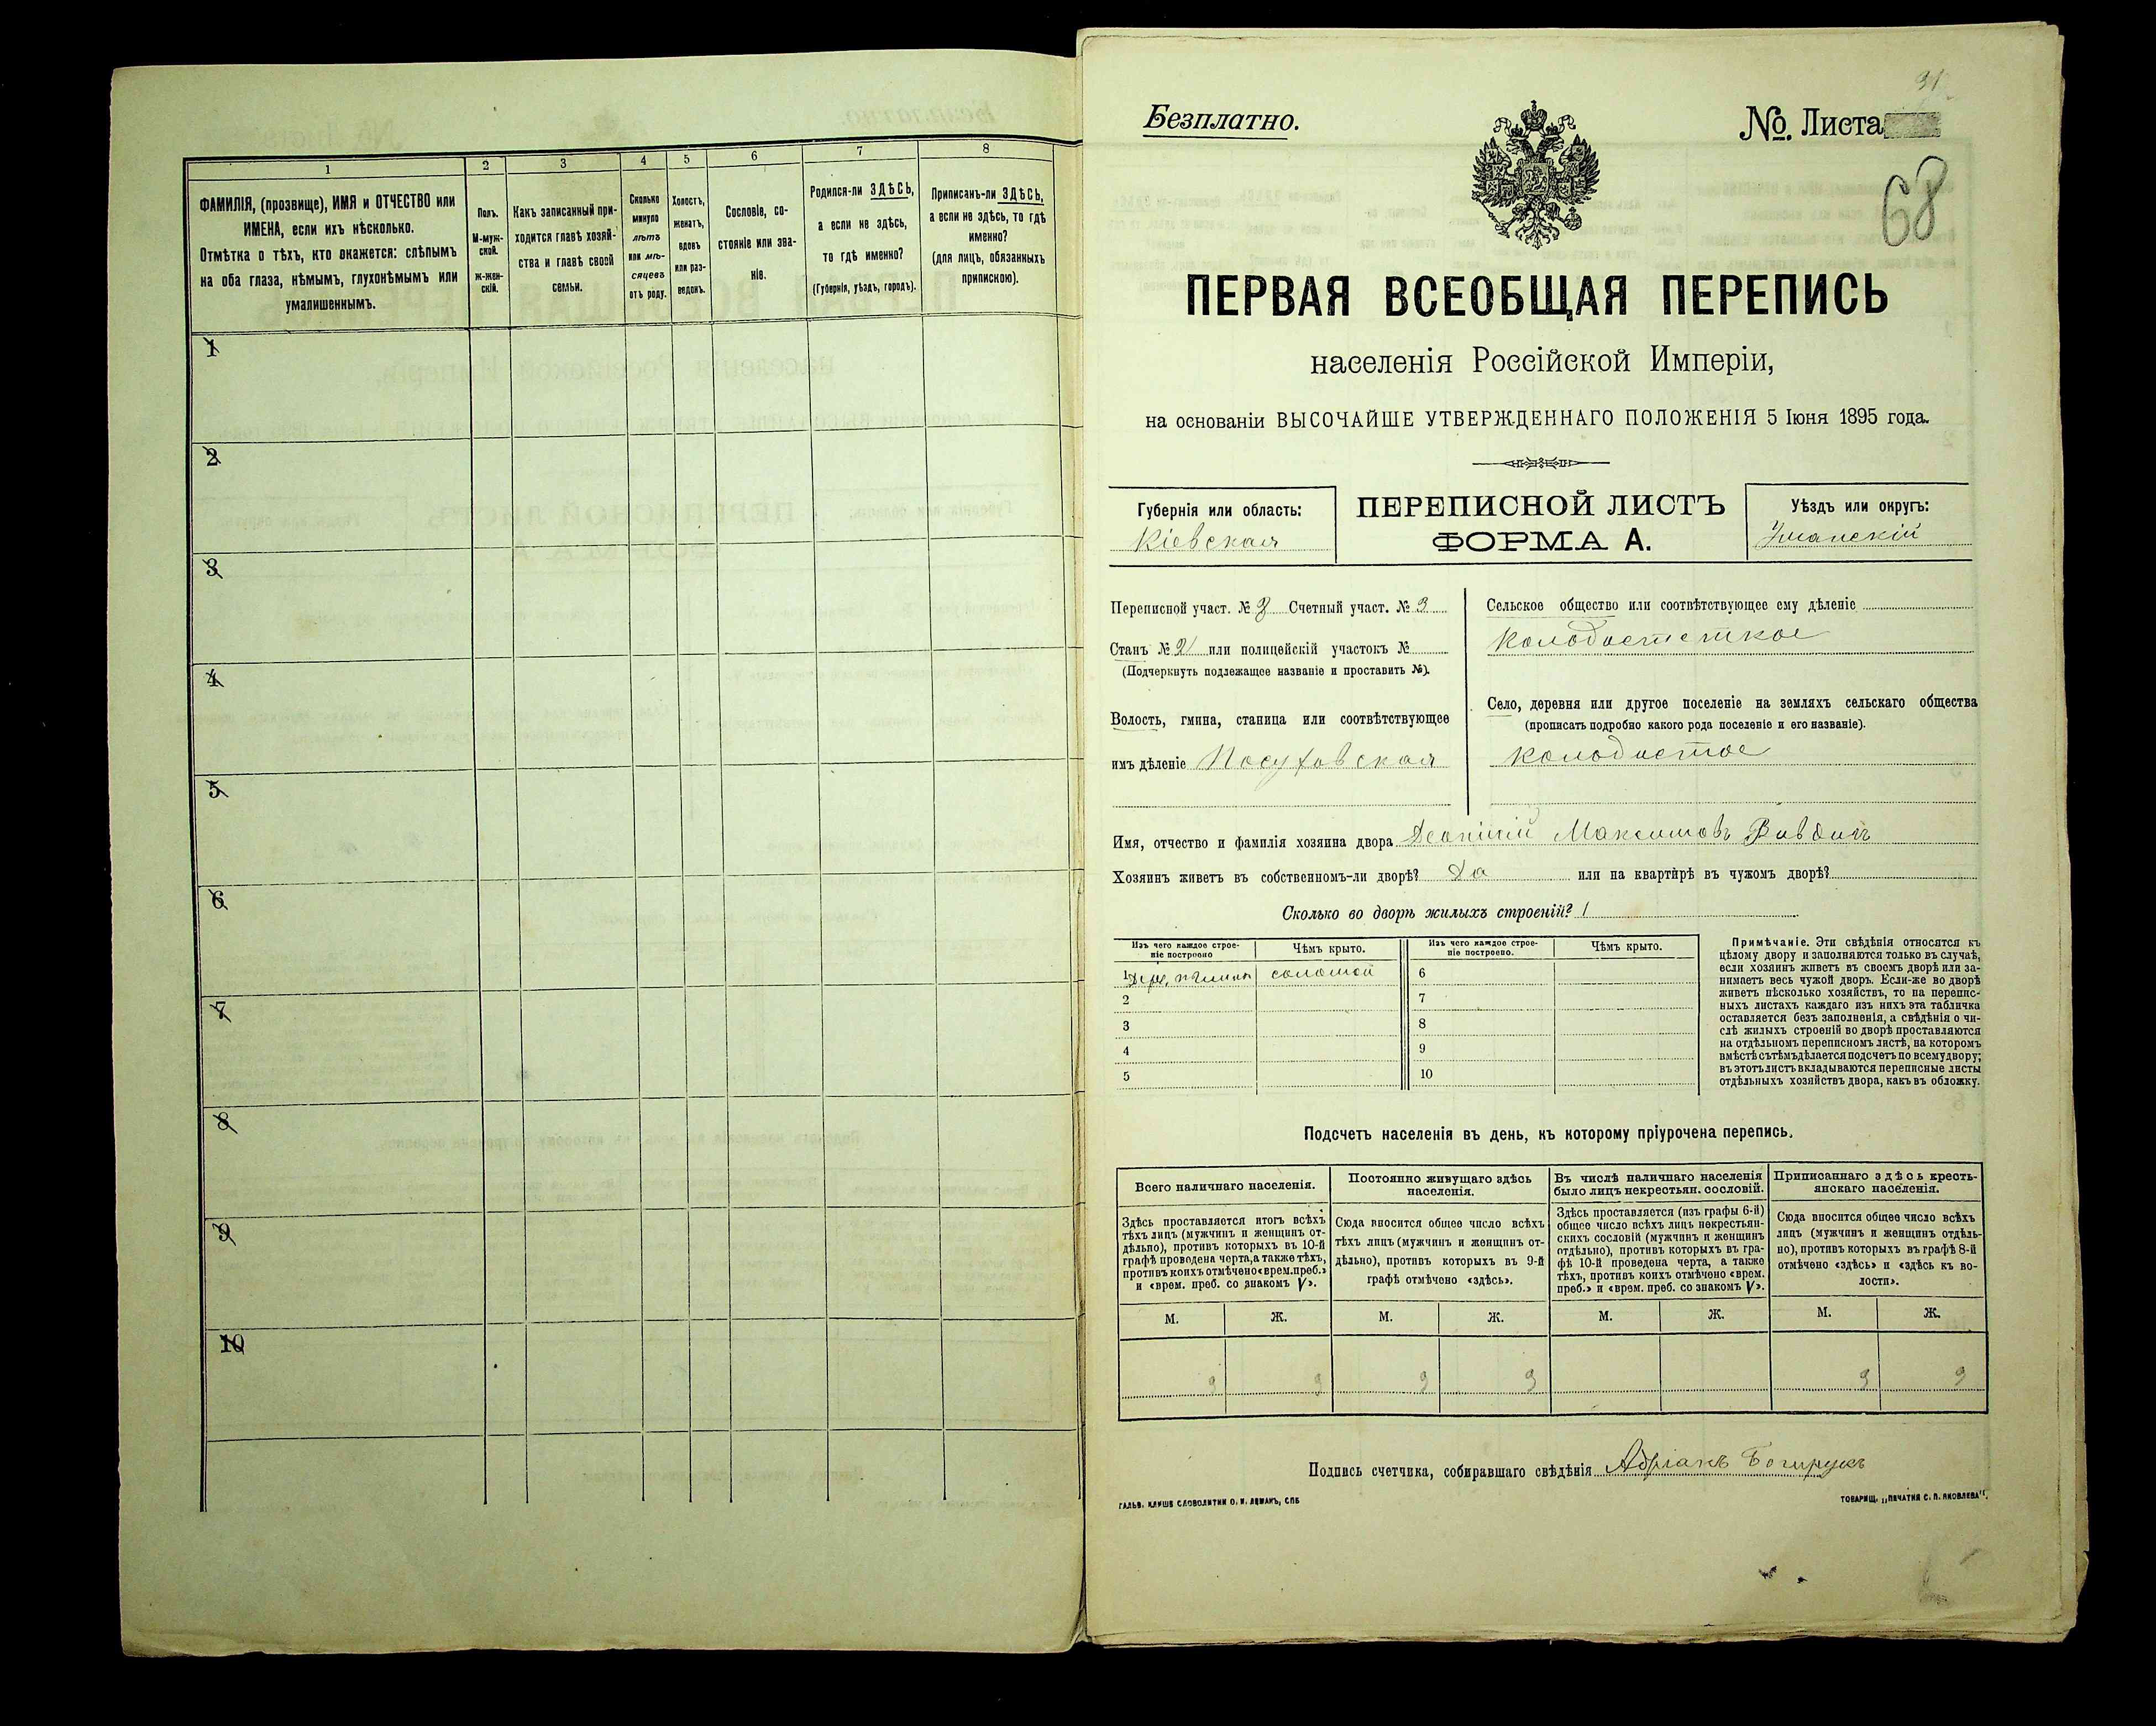 1
2
3
4
5
6
7
8
ФАМИЛІЯ, (прозвище), ИМЯ и ОТЧЕСТВО или
ИМЕНА, если ихъ нѣсколько.
Отмѣтка о тѣхъ, кто окажется: слѣпымъ
на оба глаза, нѣмымъ, глухонѣмымъ или
умалишеннымъ.
Полъ.
М-муж-
ской.
ж-жен-
скій.
Какъ записанный при-
ходится главѣ хозяй-
ства и главѣ своей
семьи.
Сколько
минуло
лѣтъ
или мѣ-
сяцевъ
отъ роду.
Холостъ,
женатъ,
вдовъ
или раз-
веденъ.
Сословіе, со-
стояніе или зва-
ніе.
Родился-ли ЗДѢСЬ,
а если не здѣсь,
то гдѣ именно?
(Губернія, уѣздъ, городъ).
Приписанъ-ли ЗДѢСЬ,
а если не здѣсь, то гдѣ
именно?
(для лицъ, обязанныхъ
припискою).
1
2
3
4
5
6
7
8
9
10
31
Безплатно.
№ Листа
68
ПЕРВАЯ ВСЕОБЩАЯ ПЕРЕПИСЬ
населенія Россійской Имперіи,
на основаніи ВЫСОЧАЙШЕ УТВЕРЖДЕННАГО ПОЛОЖЕНІЯ 5 Іюня 1895 года.
Губернія или область:
Кіевская
ПЕРЕПИСНОЙ ЛИСТЪ
ФОРМА А.
Уѣздъ или округъ:
Уманскій
Переписной участ. № 3 Счетный участ. № 3
Станъ № 2 или полицейскій участокъ №
(Подчеркнуть подлежащее названіе и проставить №).
Волость, гмина, станица или соотвѣтствующее
имъ дѣленіе Посуховская
Сельское общество или соотвѣтствующее ему дѣленіе
Село, деревня или другое поселеніе на земляхъ сельскаго общества
(прописать подробно какого рода поселеніе и его названіе).
Колодистое
Имя, отчество и фамилія хозяина двора Максимовъ
Хозяинъ живетъ въ собственномъ-ли дворѣ? Да или на квартирѣ въ чужомъ дворѣ?
Сколько во дворѣ жилыхъ строеній? 1
Изъ чего каждое строе-
ніе построено
Чѣмъ крыто.
Изъ чего каждое строе-
ніе построено.
Чѣмъ крыто.
1 соломой
2
3
4
5
6
7
8
9
10
Примѣчаніе. Эти свѣдѣнія относятся къ
цѣлому двору и заполняются только въ случаѣ,
если хозяинъ живетъ въ своемъ дворѣ или за-
нимаетъ весь чужой дворъ. Если-же во дворѣ
живетъ нѣсколько хозяйствъ, то на перепис-
ныхъ листахъ каждаго изъ нихъ эта табличка
оставляется безъ заполненія, а свѣдѣнія о чи-
слѣ жилыхъ строеній во дворѣ проставляются
на отдѣльномъ переписномъ листѣ, на которомъ
вмѣстѣ съ тѣмъ дѣлается подсчетъ по всему двору;
въ этотъ листъ вкладываются переписные листы
отдѣльныхъ хозяйствъ двора, какъ въ обложку.
Подсчетъ населенія въ день, къ которому пріурочена перепись.
Всего наличнаго населенія.
Постоянно живущаго здѣсь
населенія.
Въ числѣ наличнаго населенія
было лицъ некрестьян. сословій.
Приписаннаго здѣсь кресть-
янскаго населенія.
Здѣсь проставляется итогъ всѣхъ
тѣхъ лицъ (мужчинъ и женщинъ от-
дѣльно), противъ которыхъ въ 10-й
графѣ проведена черта, а также тѣхъ,
противъ коихъ отмѣчено «врем. преб.»
и «врем. преб. со знакомъ V».
Сюда вносится общее число всѣхъ
тѣхъ лицъ (мужчинъ и женщинъ от-
дѣльно), противъ которыхъ въ 9-й
графѣ отмѣчено «здѣсь».
Здѣсь проставляется (изъ графы 6-й)
общее число всѣхъ лицъ некрестьян-
скихъ сословій (мужчинъ и женщинъ
отдѣльно), противъ которыхъ въ гра-
фѣ 10-й проведена черта, а также
тѣхъ, противъ коихъ отмѣчено «врем.
преб.» и «врем. преб. со знакомъ V».
Сюда вносится общее число всѣхъ
лицъ (мужчинъ и женщинъ отдѣль-
но), противъ которыхъ въ графѣ 8-й
отмѣчено «здѣсь» и «здѣсь къ во-
лости».
М. Ж. М. Ж. М. Ж. М. Ж.
3 3 3 3 3 3
Подпись счетчика, собиравшаго свѣдѣнія Адріанъ
ГАЛЬВ. КЛИШЕ СЛОВОЛИТНИ О. И. ЛЕМАНЪ, СПБ
ТОВАРИЩ. „ПЕЧАТНЯ С. П. ЯКОВЛЕВА".